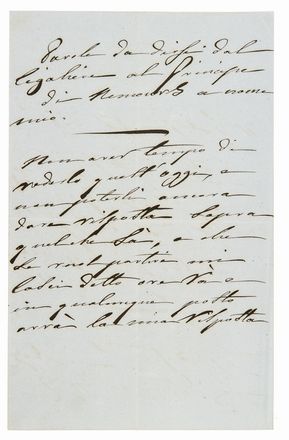 Parole da dirsi dal
al Principe
di Nemours a nome
mio.
Non aver tempo di
vederlo quest'oggi, e
non poterli ancora
dare risposta sopra
quelche sà, e che
se vuol partire mi
lasci detto ove và e
in qualunque posto
avrà la mia risposta